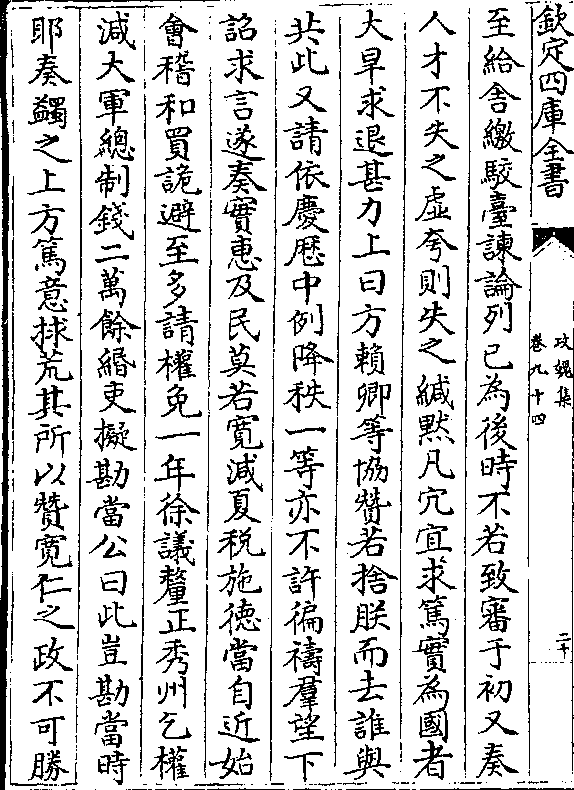 欽定四庫全書
攻媿集
卷九十四
二十
至給舍繳駮臺諫論列已為後時不若致審于初又奏
人才不失之虛夸則失之緘默凡宂宜求篤實為國者
大旱求退甚力上曰方賴卿等協贊若捨朕而去誰與
共此又請依慶歷中例降秩一等亦不許徧禱羣望下
詔求言遂奏實惠及民莫若寛減夏税施徳當自近始
會稽和買詭避至多請權免一年徐議釐正秀州乞權
減大軍總制錢二萬餘緡吏擬勘當公曰此豈勘當時
耶奏蠲之上方篤意捄荒其所以贊寛仁之政不可勝